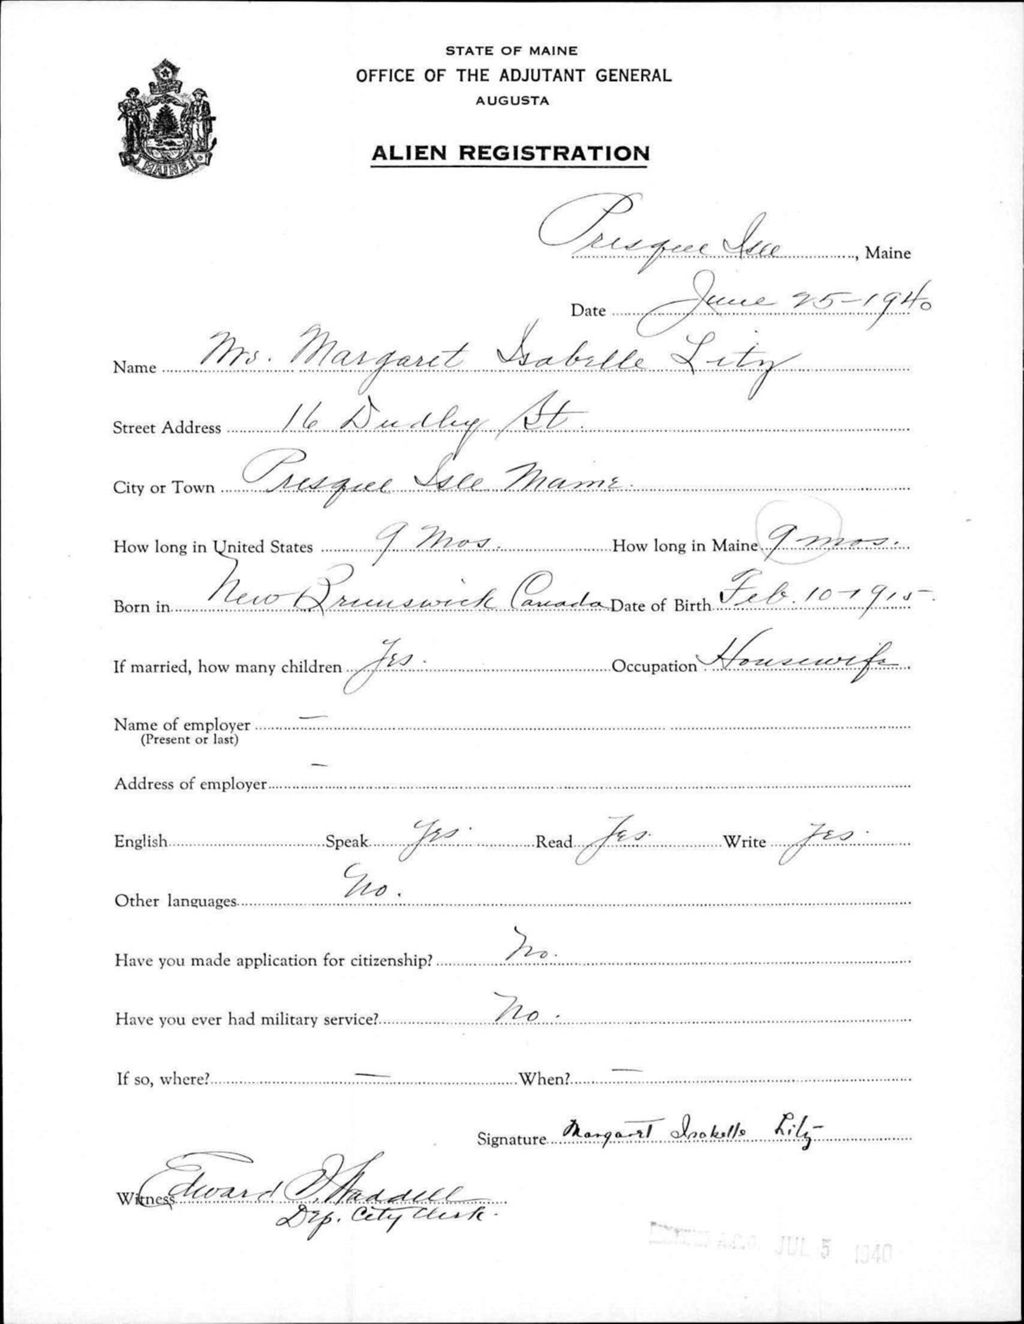 STATE OF MAINE
OFFICE OF THE ADJUTANT GENERAL
AUGUSTA
ALIEN REGISTRATION
MAINE
Presque Isle, Maine
Date June 25-1940
Name Mrs. Margaret Isabelle Litz
Street Address 16 Dudley St.
City or Town Presque Isle Maine.
How long in United States 9 Mos. How long in Maine 9 mos.
Born in New Brunswick Canada Date of Birth Feb. 10-1915.
If married, how many children Yes. Occupation Housewife.
Name of employer —
(Present or last)
Address of employer —
English Speak Yes. Read Yes. Write Yes.
Other languages No.
Have you made application for citizenship? No.
Have you ever had military service? No.
If so, where? — When? —
Signature Margaret Isabelle Litz
Witness Edward Waddell
Dep. City Clerk.
A.G.O. JUL 5 1940